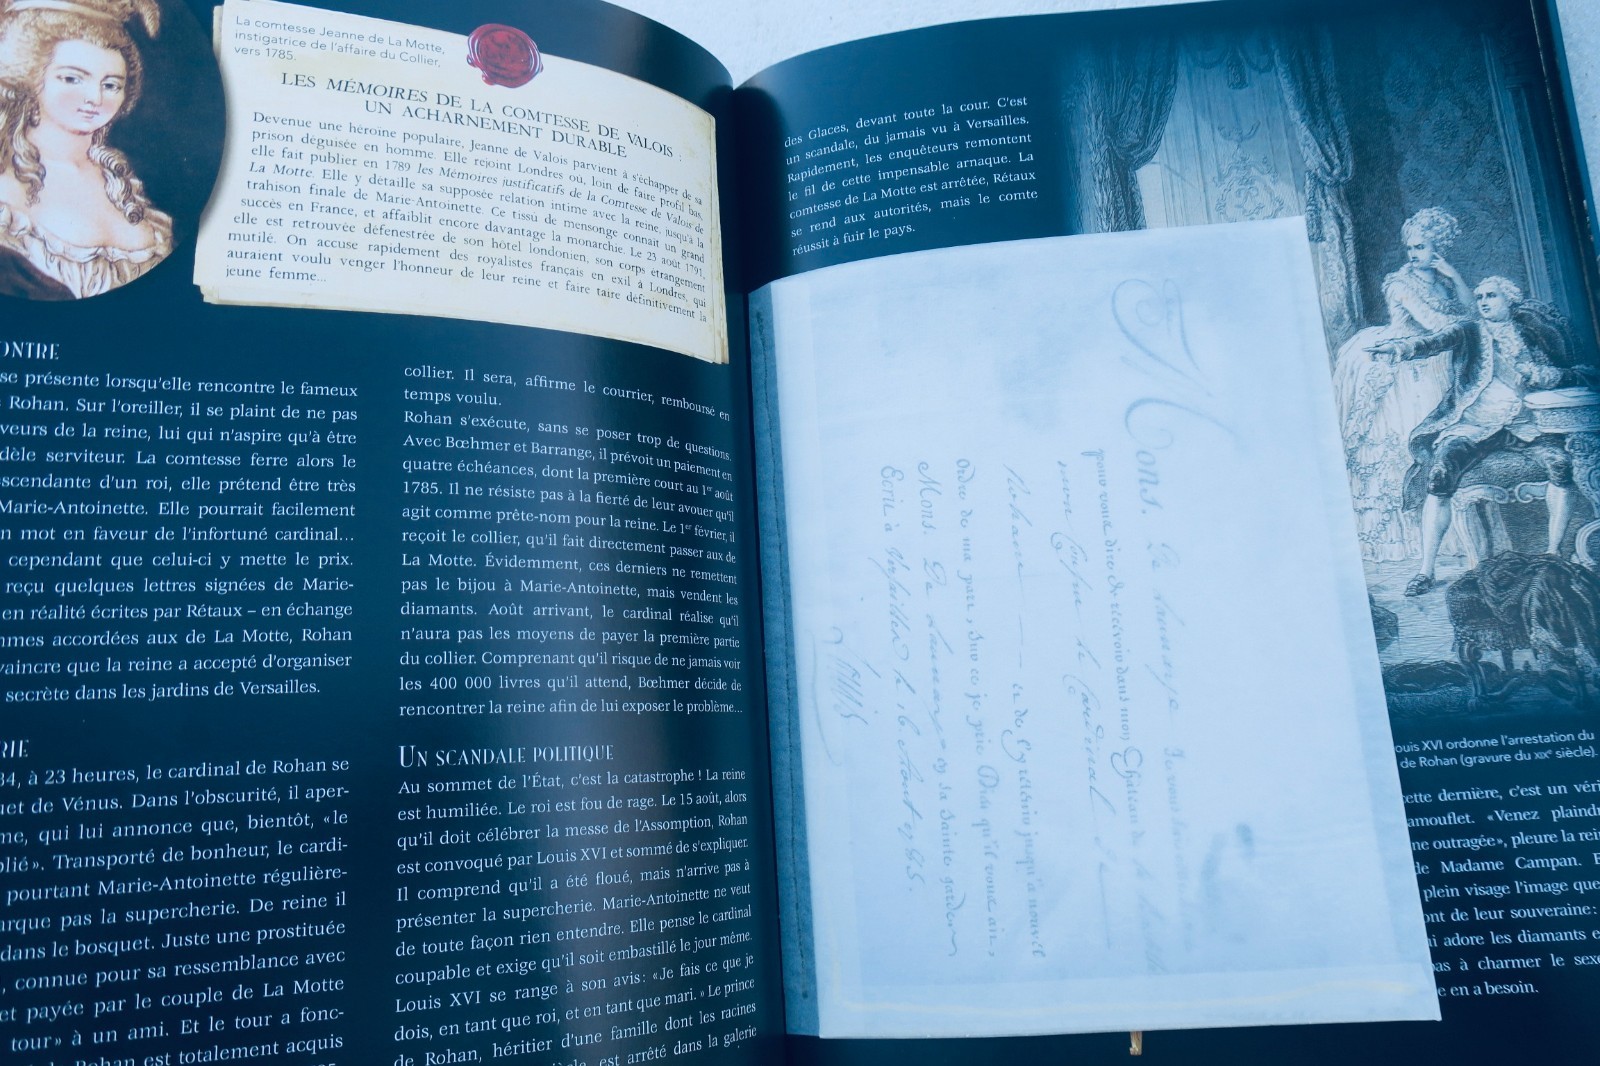 La comtesse Jeanne de La Motte,
instigatrice de l'affaire du Collier,
vers 1785.
LES MÉMOIRES DE LA COMTESSE DE VALOIS :
UN ACHARNEMENT DURABLE
Devenue une héroïne populaire, Jeanne de Valois parvient à s'échapper de sa
prison déguisée en homme. Elle rejoint Londres où, loin de faire profil bas,
elle fait publier en 1789 les Mémoires justificatifs de la Comtesse de Valois de
La Motte. Elle y détaille sa supposée relation intime avec la reine, jusqu'à la
trahison finale de Marie-Antoinette. Ce tissu de mensonge connait un grand
succès en France, et affaiblit encore davantage la monarchie. Le 23 août 1791,
elle est retrouvée défenestrée de son hôtel londonien, son corps étrangement
mutilé. On accuse rapidement des royalistes français en exil à Londres, qui
auraient voulu venger l'honneur de leur reine et faire taire définitivement la
jeune femme...
ONTRE
se présente lorsqu'elle rencontre le fameux
Rohan. Sur l'oreiller, il se plaint de ne pas
veurs de la reine, lui qui n'aspire qu'à être
dèle serviteur. La comtesse ferre alors le
scendante d'un roi, elle prétend être très
Marie-Antoinette. Elle pourrait facilement
n mot en faveur de l'infortuné cardinal...
cependant que celui-ci y mette le prix.
reçu quelques lettres signées de Marie-
en réalité écrites par Rétaux – en échange
mmes accordées aux de La Motte, Rohan
vaincre que la reine a accepté d'organiser
secrète dans les jardins de Versailles.
RIE
84, à 23 heures, le cardinal de Rohan se
uet de Vénus. Dans l'obscurité, il aper-
me, qui lui annonce que, bientôt, «le
blié». Transporté de bonheur, le cardi-
pourtant Marie-Antoinette régulière-
arque pas la supercherie. De reine il
dans le bosquet. Juste une prostituée
, connue pour sa ressemblance avec
et payée par le couple de La Motte
tour» à un ami. Et le tour a fonc-
Rohan est totalement acquis
collier. Il sera, affirme le courrier, remboursé en
temps voulu.
Rohan s'exécute, sans se poser trop de questions.
Avec Bœhmer et Barrange, il prévoit un paiement en
quatre échéances, dont la première court au 1er août
1785. Il ne résiste pas à la fierté de leur avouer qu'il
agit comme prête-nom pour la reine. Le 1er février, il
reçoit le collier, qu'il fait directement passer aux de
La Motte. Évidemment, ces derniers ne remettent
pas le bijou à Marie-Antoinette, mais vendent les
diamants. Août arrivant, le cardinal réalise qu'il
n'aura pas les moyens de payer la première partie
du collier. Comprenant qu'il risque de ne jamais voir
les 400 000 livres qu'il attend, Bœhmer décide de
rencontrer la reine afin de lui exposer le problème...
UN SCANDALE POLITIQUE
Au sommet de l'État, c'est la catastrophe ! La reine
est humiliée. Le roi est fou de rage. Le 15 août, alors
qu'il doit célébrer la messe de l'Assomption, Rohan
est convoqué par Louis XVI et sommé de s'expliquer.
Il comprend qu'il a été floué, mais n'arrive pas à
présenter la supercherie. Marie-Antoinette ne veut
de toute façon rien entendre. Elle pense le cardinal
coupable et exige qu'il soit embastillé le jour même.
Louis XVI se range à son avis: «Je fais ce que je
dois, en tant que roi, et en tant que mari. » Le prince
de Rohan, héritier d'une famille dont les racines
est arrêté dans la galerie
des Glaces, devant toute la cour. C'est
un scandale, du jamais vu à Versailles.
Rapidement, les enquêteurs remontent
le fil de cette impensable arnaque. La
comtesse de La Motte est arrêtée, Rétaux
se rend aux autorités, mais le comte
réussit à fuir le pays.
Mons. De Launay
pour vous dire de recevoir dans mon Château de la
mon Cousin le Cardinal de
Rohan et de l'y retenir jusqu'à nouvel
Ordre de ma part, Sur ce je prie Dieu qu'il vous ait,
Mons. De Launay en sa Sainte garde
Ecrit à Versailles le 16 Aout 1785.
Louis
ouis XVI ordonne l'arrestation du
de Rohan (gravure du XIXe siècle).
ette dernière, c'est un véri
amouflet. «Venez plaindr
ne outragée», pleure la rei
de Madame Campan. E
plein visage l'image que
ont de leur souveraine:
i adore les diamants e
pas à charmer le sexe
e en a besoin.